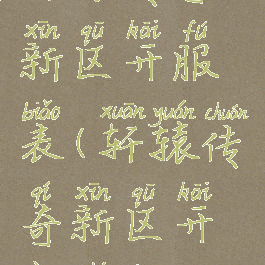 xīn qū kāi fú
新区开服
biǎo xuān yuán chuán
表(轩辕传
qí xīn qū kāi
奇新区开